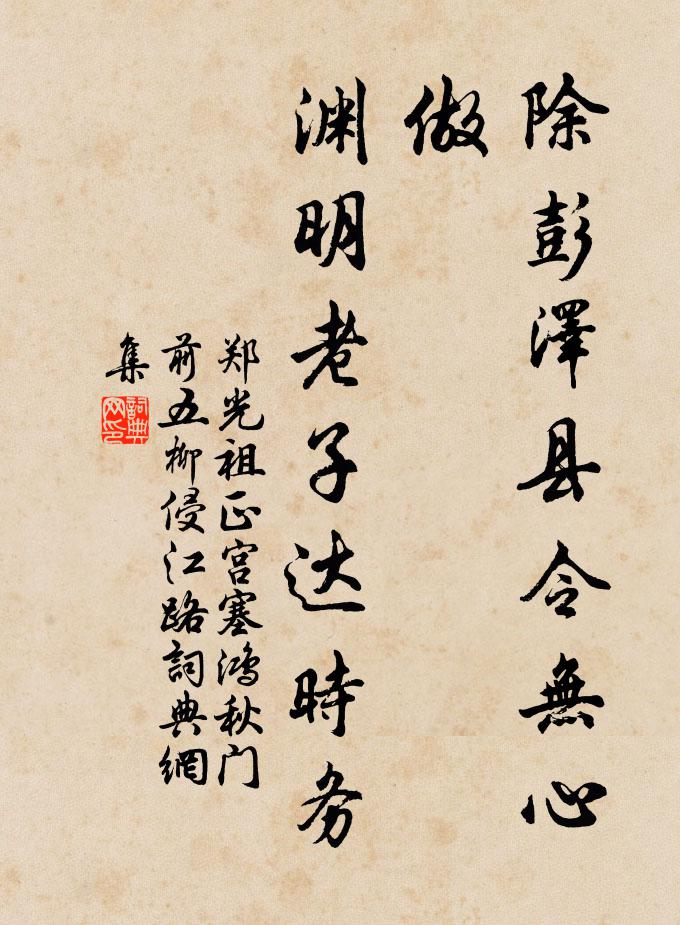 除彭澤县令無心
做
渊明老子达時务
郑光祖正宫塞鸿秋门
前五柳侵江路詞典網
集
詞典
网印